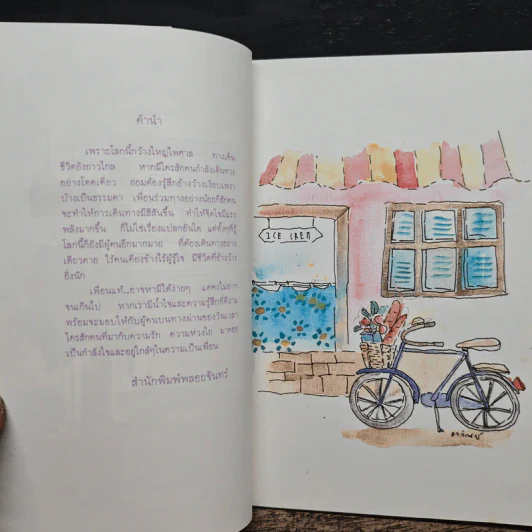 คำนำ
เพราะโลกนี้กว้างใหญ่ไพศาล ทางเดิน
ชีวิตยังยาวไกล หากมีใครสักคนกำลังเดินทาง
อย่างโดดเดี่ยว ย่อมต้องรู้สึกอ้างว้างเงียบเหงา
บ้างเป็นธรรมดา เพื่อนร่วมทางอย่างน้อยก็สักคน
จะทำให้การเดินทางมีสีสันขึ้น ทำให้จิตใจมีแรง
พลังมากขึ้น ก็ไม่ใช่เรื่องแปลกอันใด แต่ทั้งๆที่รู้
โลกนี้ก็ยังมีผู้คนอีกมากมาย ที่ต้องเดินทางอย่าง
เดียวดาย ไร้คนเคียงข้างไร้ผู้รู้ใจ มีชีวิตที่อ้างว้าง
ยิ่งนัก
เพื่อนแท้...อาจหามิได้ง่ายๆ แต่คงไม่ยาก
จนเกินไป หากเรามีน้ำใจและความรู้สึกที่ดีงาม
พร้อมจะมอบให้กับผู้คนบนทางผ่านของวันเวลา
ใครสักคนที่มากับความรัก ความห่วงใย มาคอย
เป็นกำลังใจและอยู่ใกล้ๆในความเป็นเพื่อน
สำนักพิมพ์พลอยจันทร์
ICE CREM